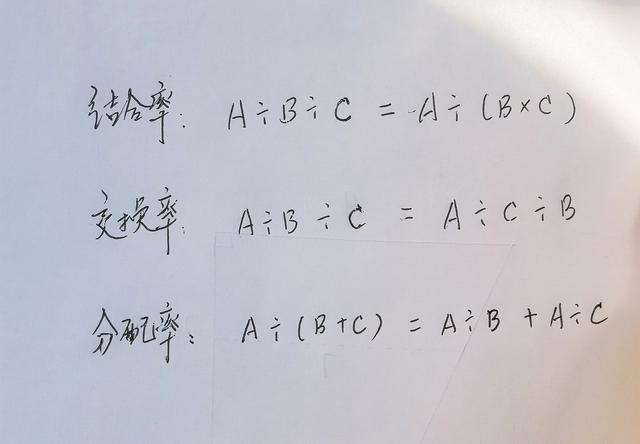 结合率: A÷B÷C = A÷(B×C)
交换率: A÷B÷C = A÷C÷B
分配率: A÷(B+C) = A÷B + A÷C